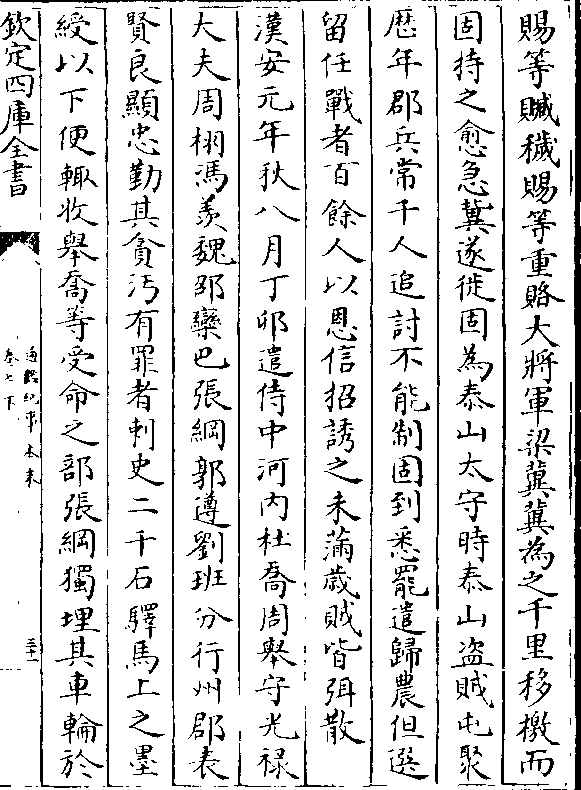 賜等贓穢賜等重賂大將軍梁冀冀為之千里移檄而
固持之愈急冀遂徙固為泰山太守時泰山盗賊屯聚
歴年郡兵常千人追討不能制固到悉罷遣歸農但選
留任戰者百餘人以恩信招誘之未滿歲賊皆弭散
漢安元年秋八月丁卯遣侍中河内杜喬周舉守光禄
大夫周栩馮羨魏郃欒巴張綱郭遵劉班分行州郡表
賢良顯忠勤其貪汚有罪者刺史二千石驛馬上之墨
綬以下便輙收舉喬等受命之部張綱獨埋其車輪於
欽定四庫全書
通鑑紀事本末
卷七下
三十一